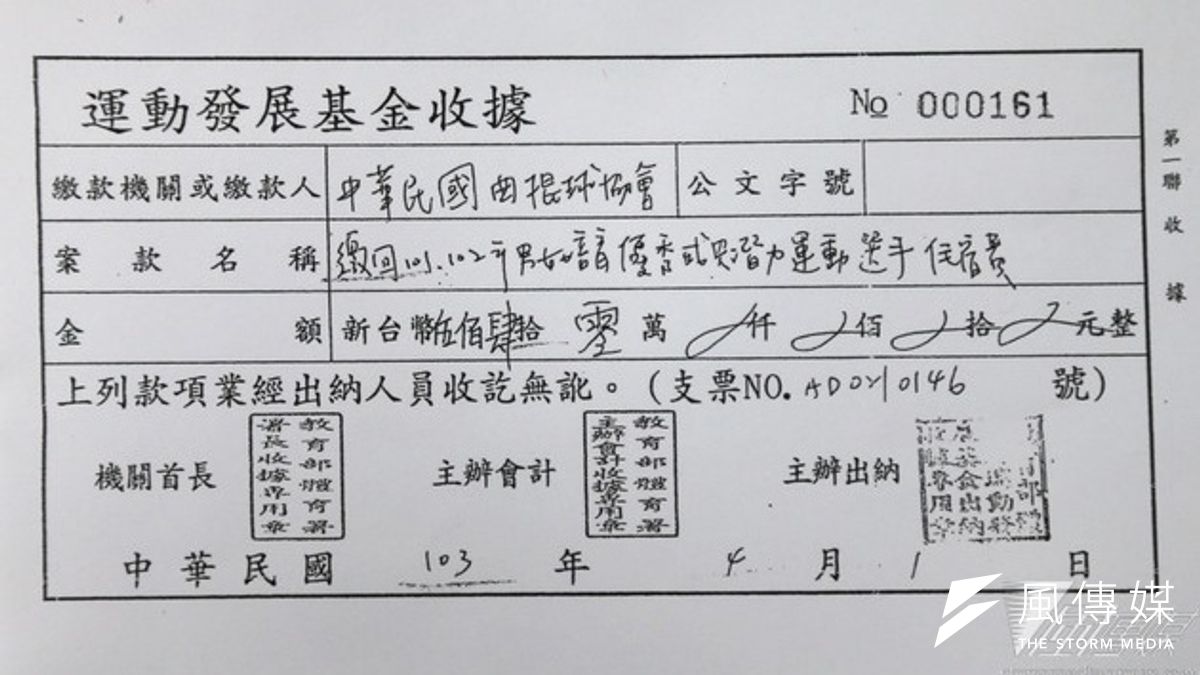 運動發展基金收據 No 000161
繳款機關或繳款人 中華民國曲棍球協會 公文字號
案款名稱 繳回101.102年男女培育優秀或具潛力運動選手住宿費
金額 新台幣伍佰肆拾零萬 仟 佰 拾 元整
上列款項業經出納人員收訖無訛。(支票NO. AD0210146 號)
機關首長 教育部體育署署長收據專用章 主辦會計 教育部體育署主辦會計收據專用章 主辦出納
中華民國 103 年 4 月 1 日
第一聯 收據
風傳媒
THE STORM MEDIA